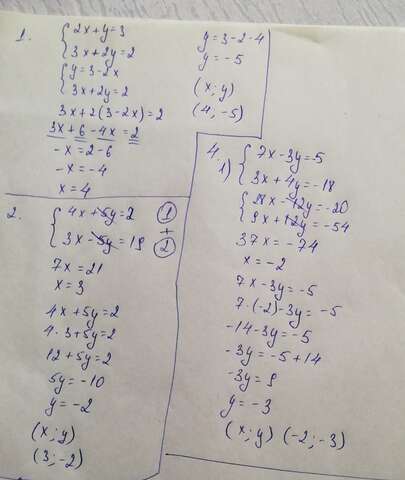 1.
2x+y=3
3x+2y=2
y=3-2x
3x+2y=2
3x+2(3-2x)=2
3x+6-4x=2
-x=2-6
-x=-4
x=4
y=3-2·4
y=-5
(x;y)
(4,-5)
2.
4x+5y=2 1
+
3x-5y=19 2
7x=21
x=3
4x+5y=2
4·3+5y=2
12+5y=2
5y=-10
y=-2
(x;y)
(3;-2)
4.
1) 7x-3y=5
3x+4y=-18
28x-12y=-20
9x+12y=-54
37x=-74
x=-2
7x-3y=-5
7·(-2)-3y=-5
-14-3y=-5
-3y=-5+14
-3y=9
y=-3
(x;y) (-2;-3)